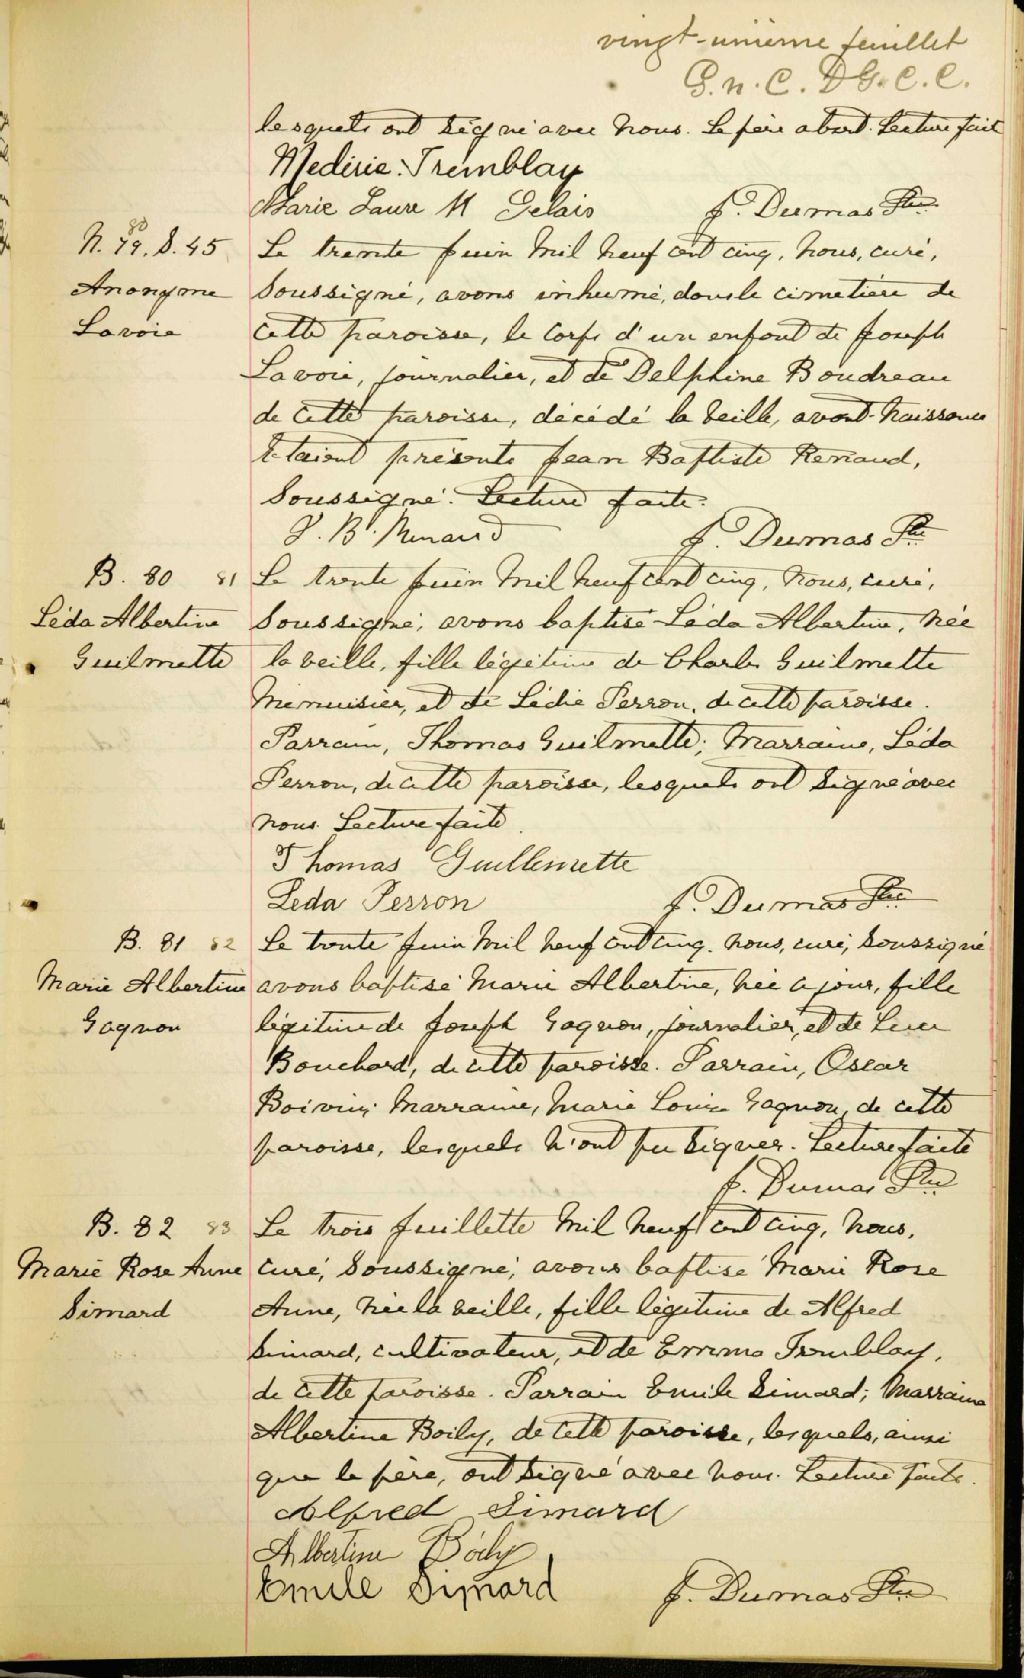 vingt-unième feuillet
G. n. C. D G. C. C.
lesquels ont signé avec nous. Le père absent. Lecture faite
Mederic Tremblay
Marie Laure St Gelais J. Dumas Ptre
80
N. 79. S. 45
Anonyme
Lavoie
Le trente juin mil neuf cent cinq, nous, curé,
soussigné, avons inhumé, dans le cimetière de
cette paroisse, le corps d'un enfant de Joseph
Lavoie, journalier, et de Delphine Boudreau
de cette paroisse, décédé la veille, avant naissance
Etaient présents Jean Baptiste Renaud,
soussigné. Lecture faite.
J. B. Renaud J. Dumas Ptre
B. 80 81
Léda Albertine
Guilmette
Le trente juin mil neuf cent cinq, nous, curé,
soussigné, avons baptisé Léda Albertine, née
la veille, fille légitime de Charles Guilmette
menuisier, et de Lédie Perron, de cette paroisse.
Parrain, Thomas Guilmette; Marraine, Léda
Perron, de cette paroisse, lesquels ont signé avec
nous. Lecture faite.
Thomas Guillemette
Leda Perron J. Dumas Ptre
B. 81 82
Marie Albertine
Gagnon
Le trente juin mil neuf cent cinq, nous, curé, soussigné
avons baptisé Marie Albertine, née ce jour, fille
légitime de Joseph Gagnon, journalier, et de Luce
Bouchard, de cette paroisse. Parrain, Oscar
Boivin; Marraine, Marie Louise Gagnon, de cette
paroisse, lesquels n'ont pu signer. Lecture faite
J. Dumas Ptre
B. 82 83
Marie Rose Anne
Simard
Le trois juillette mil neuf cent cinq, nous,
curé, soussigné, avons baptisé Marie Rose
Anne, née la veille, fille légitime de Alfred
Simard, cultivateur, et de Emma Tremblay,
de cette paroisse. Parrain Emile Simard; Marraine
Albertine Boily, de cette paroisse, lesquels, ainsi
que le père, ont signé avec nous. Lecture faite.
Alfred Simard
Albertine Boily
Emile Simard J. Dumas Ptre